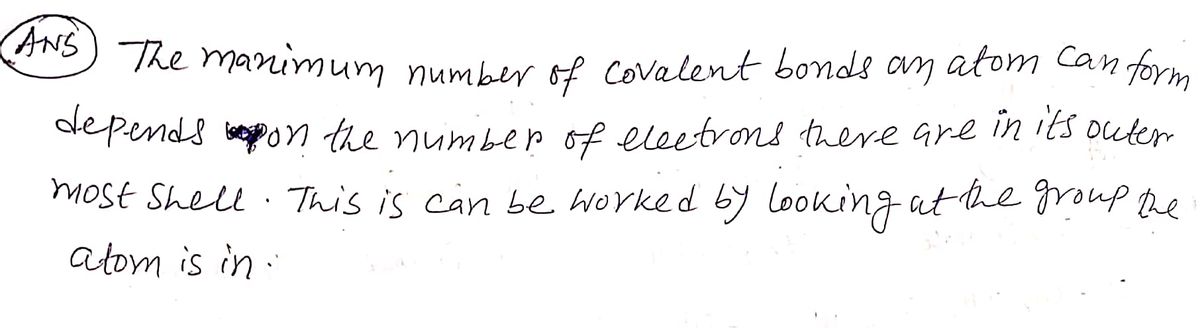 ANS The manimum number of covalent bonds an atom can form
depends upon the number of electrons there are in its outer
most shell. This is can be worked by looking at the group the
atom is in.